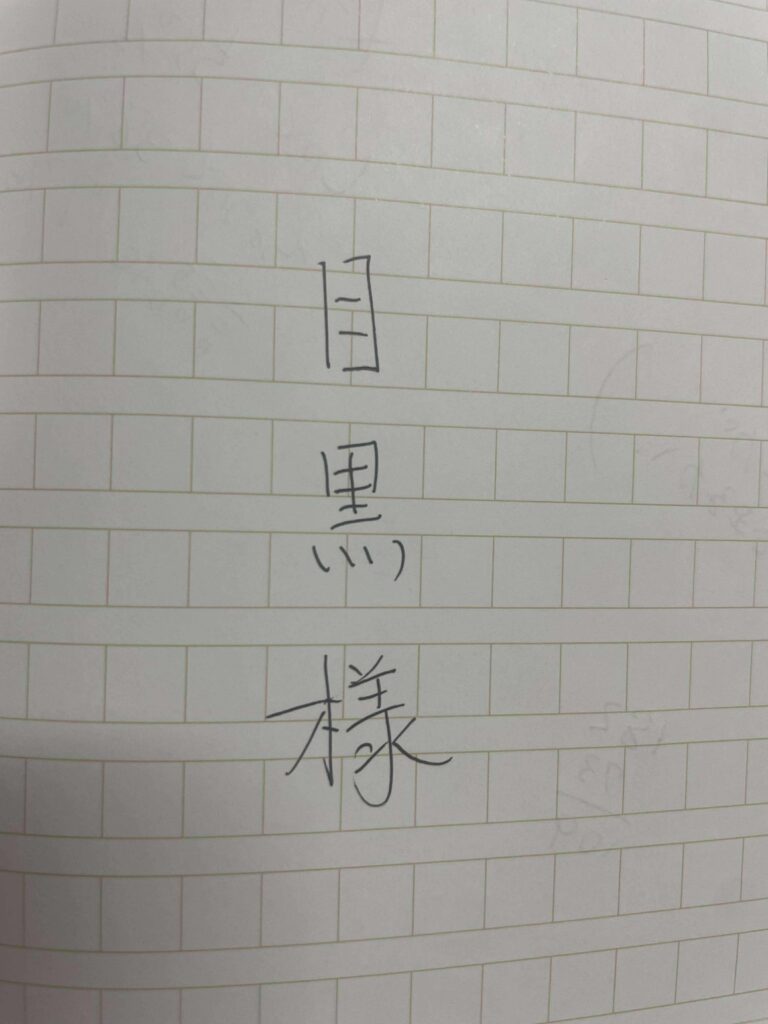 目黒様